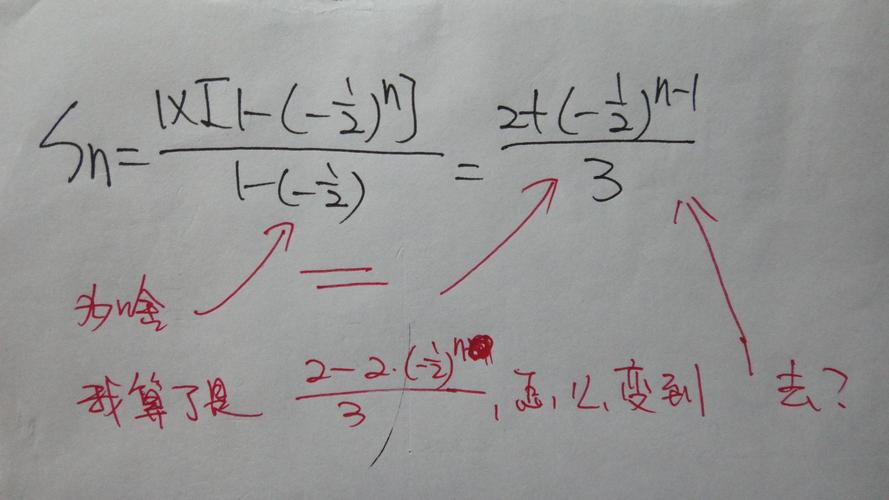 Sn = 1×[1-(-1/2)^n] / 1-(-1/2) = 2+(-1/2)^n-1 / 3
为啥 =
我算了是 2-2·(-1/2)^n / 3 ,怎么变到 去?